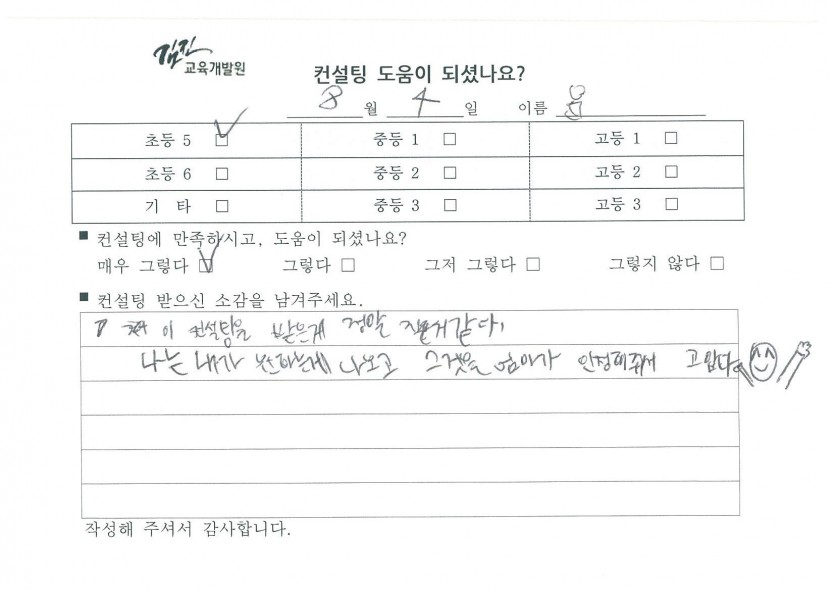 김진
교육개발원
컨설팅 도움이 되셨나요?
8 월 4 일 이름
초등 5 ☑ 중등 1 □ 고등 1 □
초등 6 □ 중등 2 □ 고등 2 □
기 타 □ 중등 3 □ 고등 3 □
■ 컨설팅에 만족하시고, 도움이 되셨나요?
매우 그렇다 ☑ 그렇다 □ 그저 그렇다 □ 그렇지 않다 □
■ 컨설팅 받으신 소감을 남겨주세요.
이 컨설팅을 받은게 정말 같다.
나는 내가 원하는게 나오고 그것을 엄마가 인정해줘서 고맙다
작성해 주셔서 감사합니다.